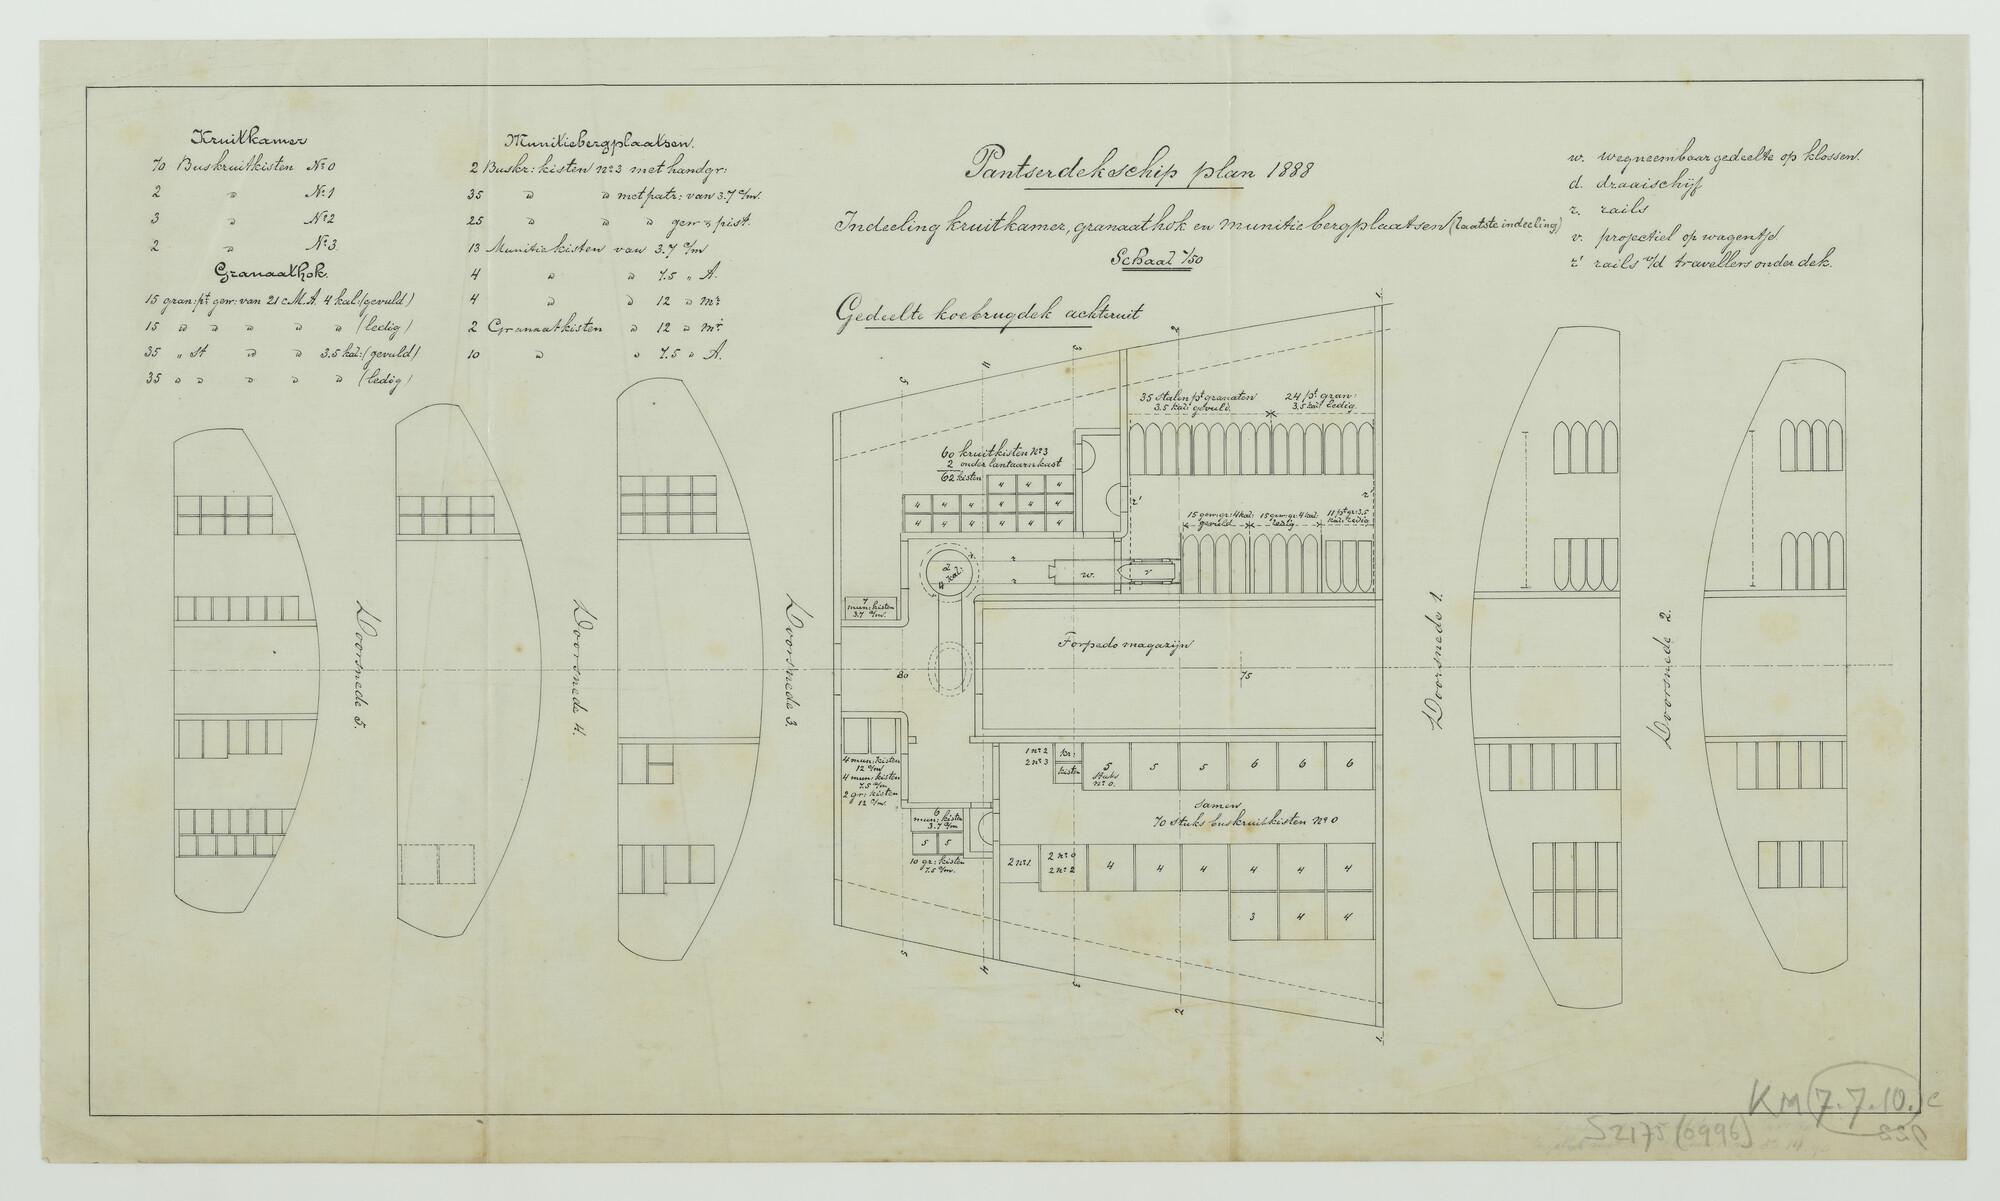 Kruitkamer
70 Buskruitkisten No 0
2 " No 1
3 " No 2
2 " No 3
Granaathok.
15 gran: pt gew: van 21 cM. A. 4 kal: (gevuld)
15 " " " " " (ledig)
35 " st " " 3.5 kal: (gevuld)
35 " " " " " (ledig)
Munitiebergplaatsen.
2 Buskr: kisten no 3 met handgr:
35 " " met patr: van 3.7 c/m.
25 " " " gew & pist.
13 Munitiekisten van 3.7 c/m
4 " " 7.5 " A.
4 " " 12 " mr
2 Granaatkisten " 12 " mr
10 " " 7.5 " A.
Pantserdekschip plan 1888
Indeeling kruitkamer, granaathok en munitiebergplaatsen (laatste indeeling)
Schaal 1/50
Gedeelte koebrugdek achteruit
w. wegneembaar gedeelte op klossen.
d. draaischijf
r. rails
v. projectiel op wagentje.
r' rails v/d travellers onder dek.
Doorsnede 5.
Doorsnede 4.
Doorsnede 3.
Doorsnede 1.
Doorsnede 2.
5 4 3 2 1.
35 stalen pt granaten
3.5 kal: gevuld.
24 pt gran:
3.5 kal: ledig.
60 kruitkisten No 3
2 onder lantaarnkast
62 kisten
4 4 4
4 4 4 4 4 4
4 4 4 4 4 4
r' r'
15 gew: gr: 4 kal:
gevuld
15 gew: gr: 4 kal:
ledig.
11 pt gr: 3.5
kal: ledig
d
4 kal:
r r
w. v
7
mun: kisten
3.7 c/m.
Torpedo magazijn
80 75
4 mun: kisten
12 c/m.
4 mun: kisten
7.5 c/m.
2 gr: kisten
12 c/m.
6
mun: kisten
3.7 c/m
5 5
10 gr: kisten
7.5 c/m.
1 no 2
2 no 3
kr:
kisten
5
stuks
no 0.
5 5 6 6 6
Samen
70 stuks buskruitkisten No 0
2 no 1.
2 no 0
2 no 2
4 4 4 4 4 4
3 4 4
5 4 3 2 1.
KM 7.7.10.c
S2175 (6996)